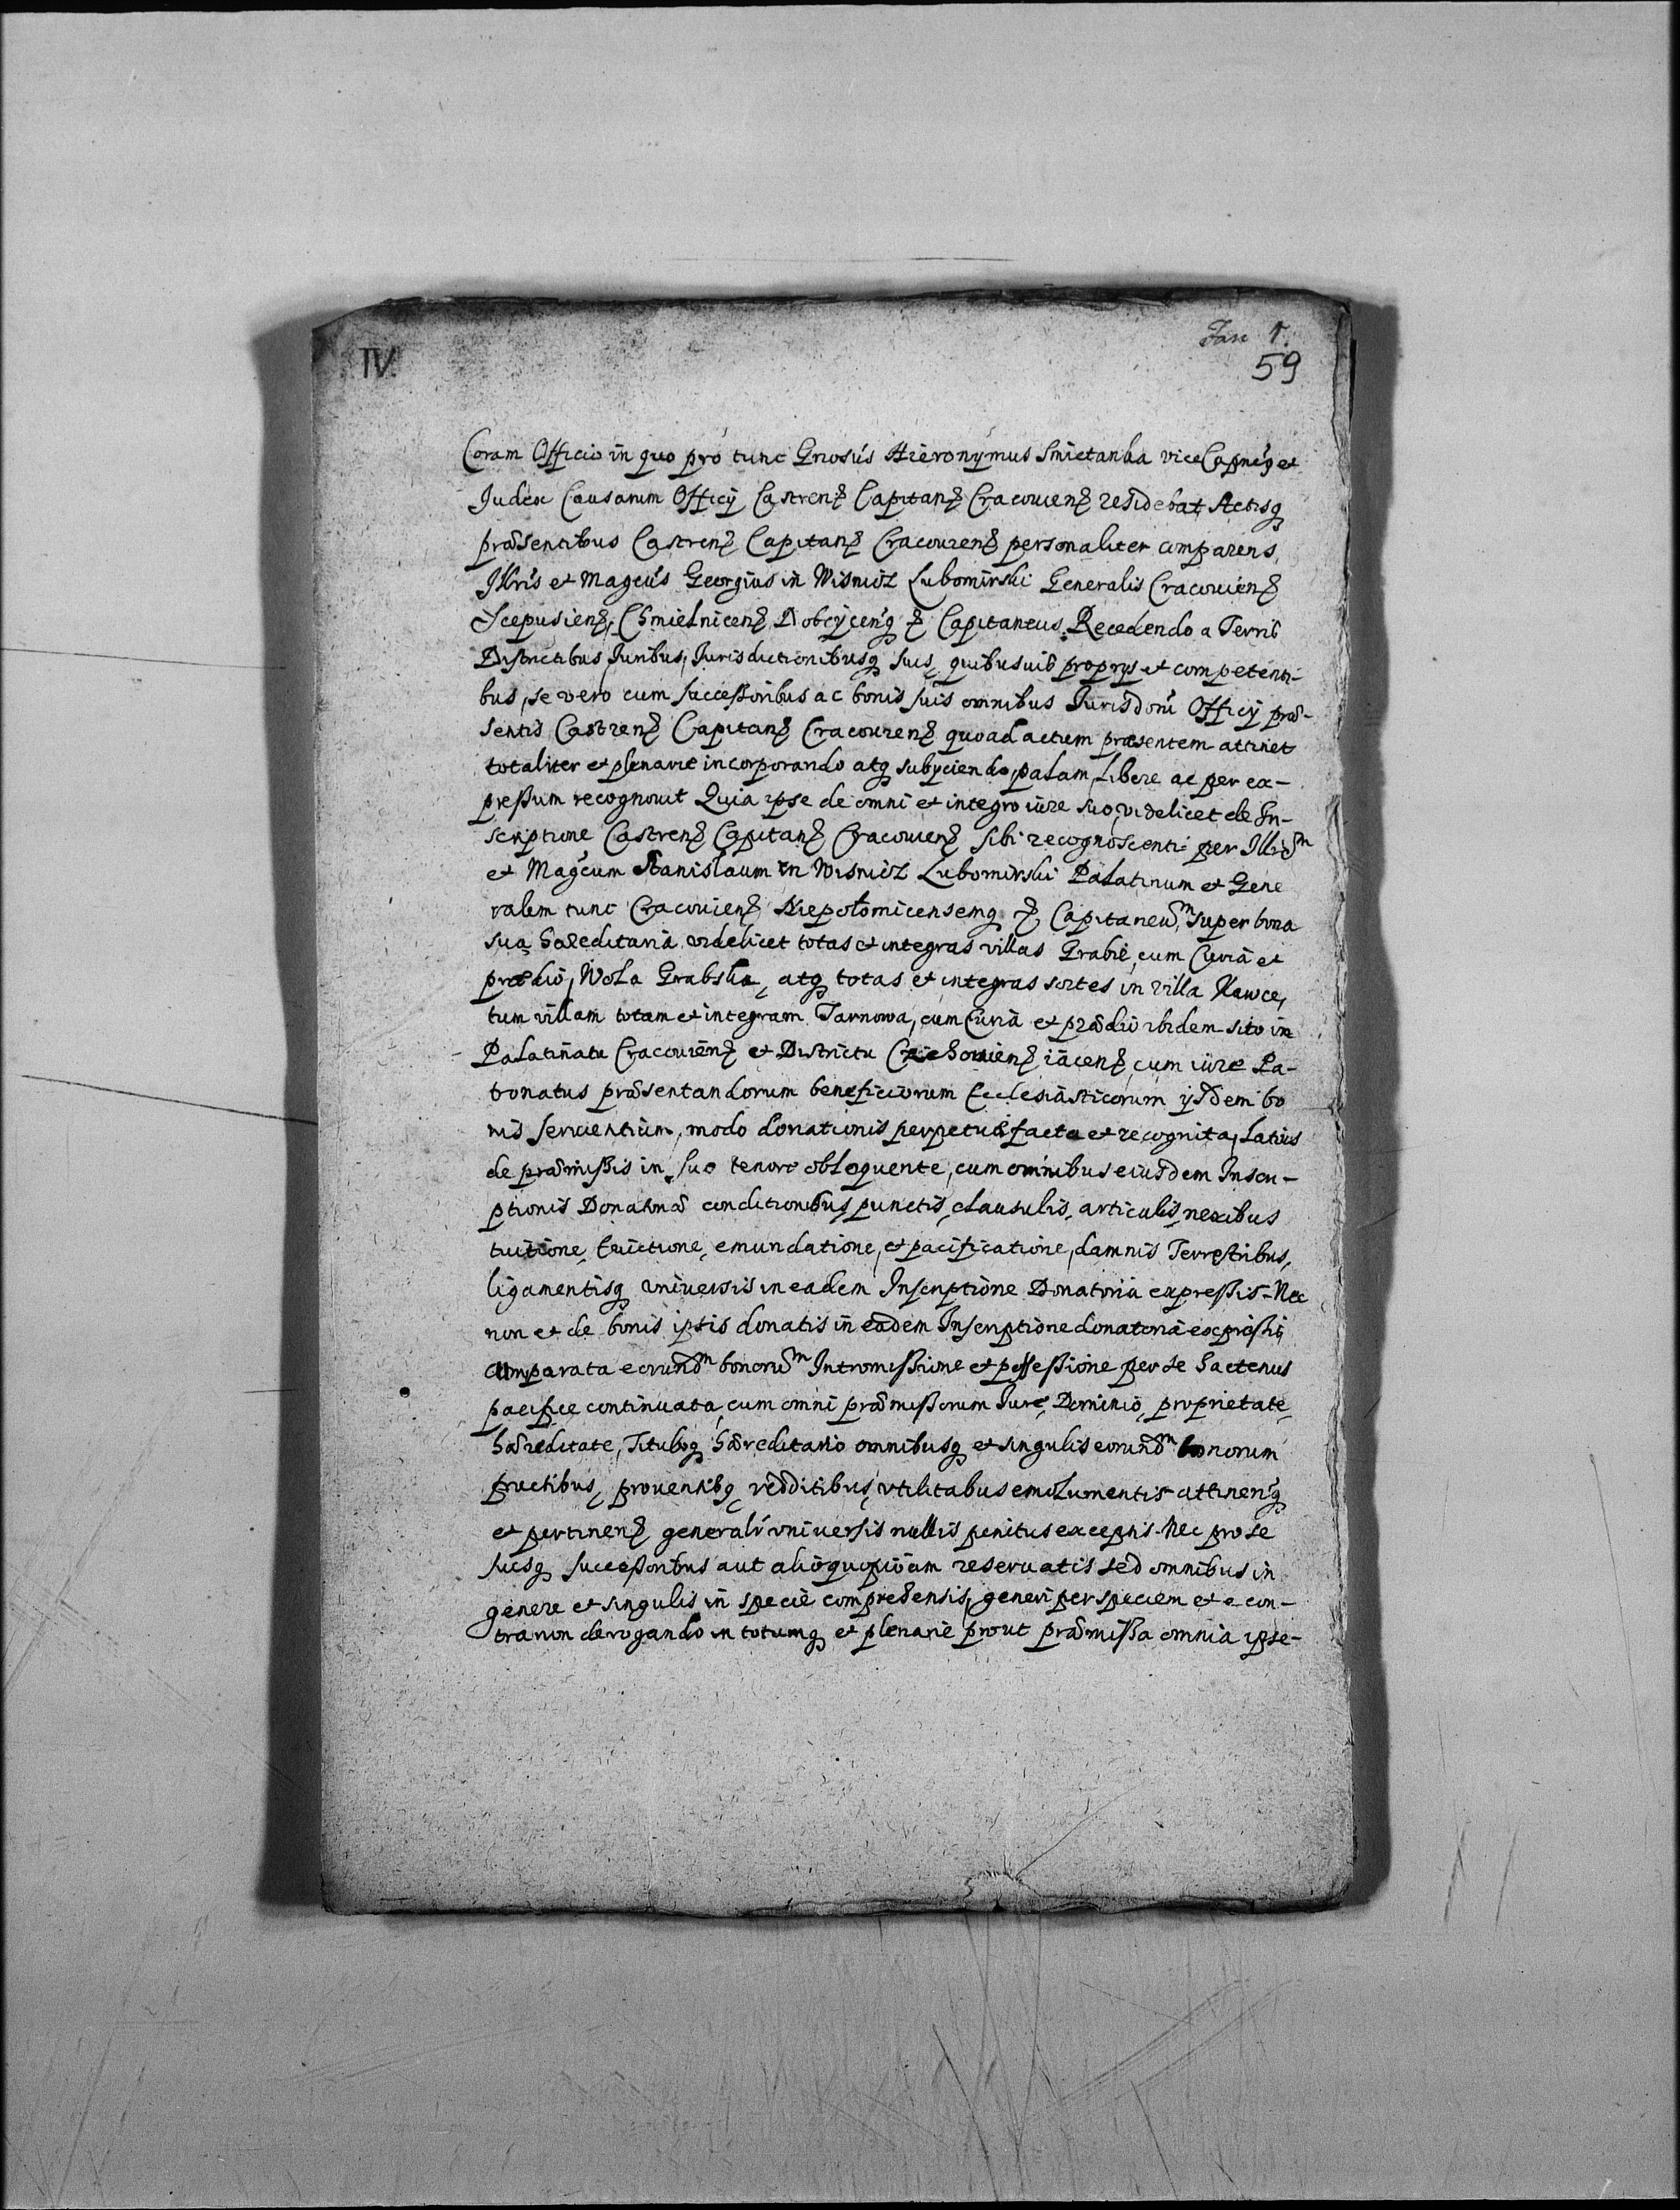 IV.
Fasc 1.
59
Coram Officio in quo pro tunc Gnosus Hieronymus Smietanka vice Capneus et
Judex Causarum Officij Castren Capitan Cracovien residebat Actisq
præsentibus Castren Capitan Cracovien personaliter comparens,
Illris et Magcus Georgius in Wisnicz Lubomirski Generalis Cracovien
Scepusien, Chmielnicen Dobcycenq Capitaneus Recedendo a Terris
Districtibus, Juribus, Jurisdictionibusq suis, quibusvis proprys et competenti-
bus, se vero cum successoribus ac bonis suis omnibus Jurisdoni Officij præ-
sentis Castren Capitan Cracovien quo ad actum præsentem attinet
totaliter et plenarie incorporando atq subyciendo, palam, Libere ac per ex-
pressum recognovit Quia ipse de omni et integro iure suo, videlicet de In-
scriptione Castren Capitan Cracovien sibi recognoscenti per Illrem
et Magcum Stanislaum in Wisnicz Lubomirski Palatinum et Gene
ralem tunc Cracovien Niepołomicensemq Capitaneum, super bona
sua hæreditaria videlicet totas et integras villas Grabie, cum Curia et
prædio, Wola Grabska, atq totas et integras sortes in villa Rawce,
tum villam totam et integram Tarnowa, cum Curia et prædio ibidem sito in
Palatinatu Cracovien et Districtu iacen cum iure Pa-
tronatus præsentandorum beneficiorum Ecclesiasticorum ysdem bo
nis servientium, modo donationis perpetuæ facta et recognita, Latius
de præmissis in suo tenore obloquente, cum omnibus eiusdem Inscri-
ptionis Donatoriæ conditionibus, punctis, clausulis, articulis, nexibus
tuitione, Evictione, emundatione, et pacificatione, damnis Terrestribus,
ligamentisq universis in eadem Inscriptione Donatoria expressis - Nec
non et de bonis ipsis donatis in eadem Inscriptione donatoria expressis,
comparata eorundem bonorum Intromissione et possessione per se hactenus
pacifice continuata, cum omni præmissorum Jure, Dominio, proprietate,
hæreditate, Tituloq hæreditario omnibusq et singulis eorundem bonorum
fructibus, proventibq, redditibus, utilitabus emolumentis attinenq
et pertinen generali universis nullis penitus exceptis. Nec pro se
suisq successoribus aut alio quopiam reservatis sed omnibus in
genere et singulis in specie comprehensis, generi per speciem et e con-
tra non derogando in totumq et plenarie prout præmissa omnia ipse-